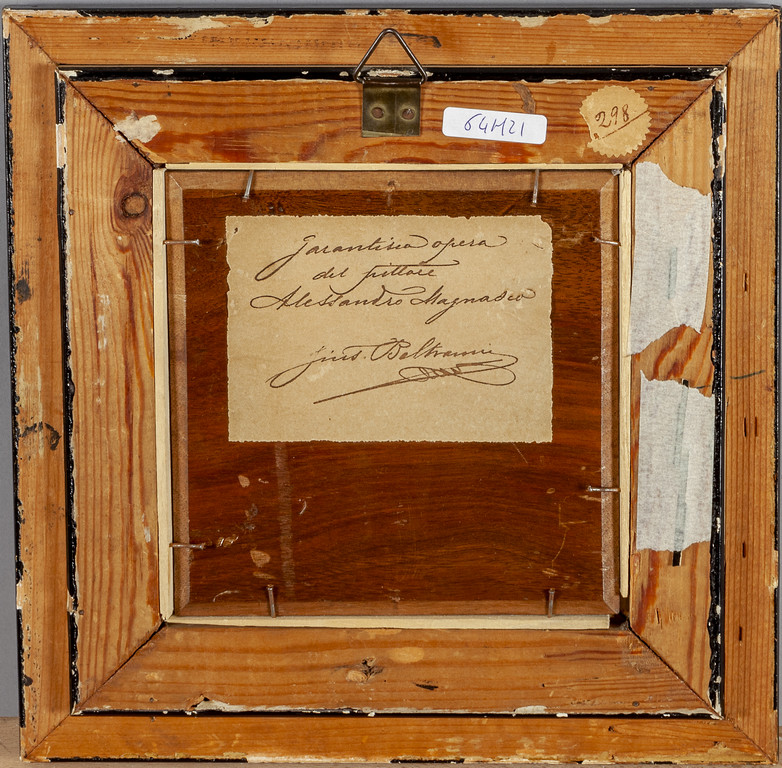 64H21
298
Garantisco opera
del pittore
Alessandro Magnasco
Gius. Beltrami